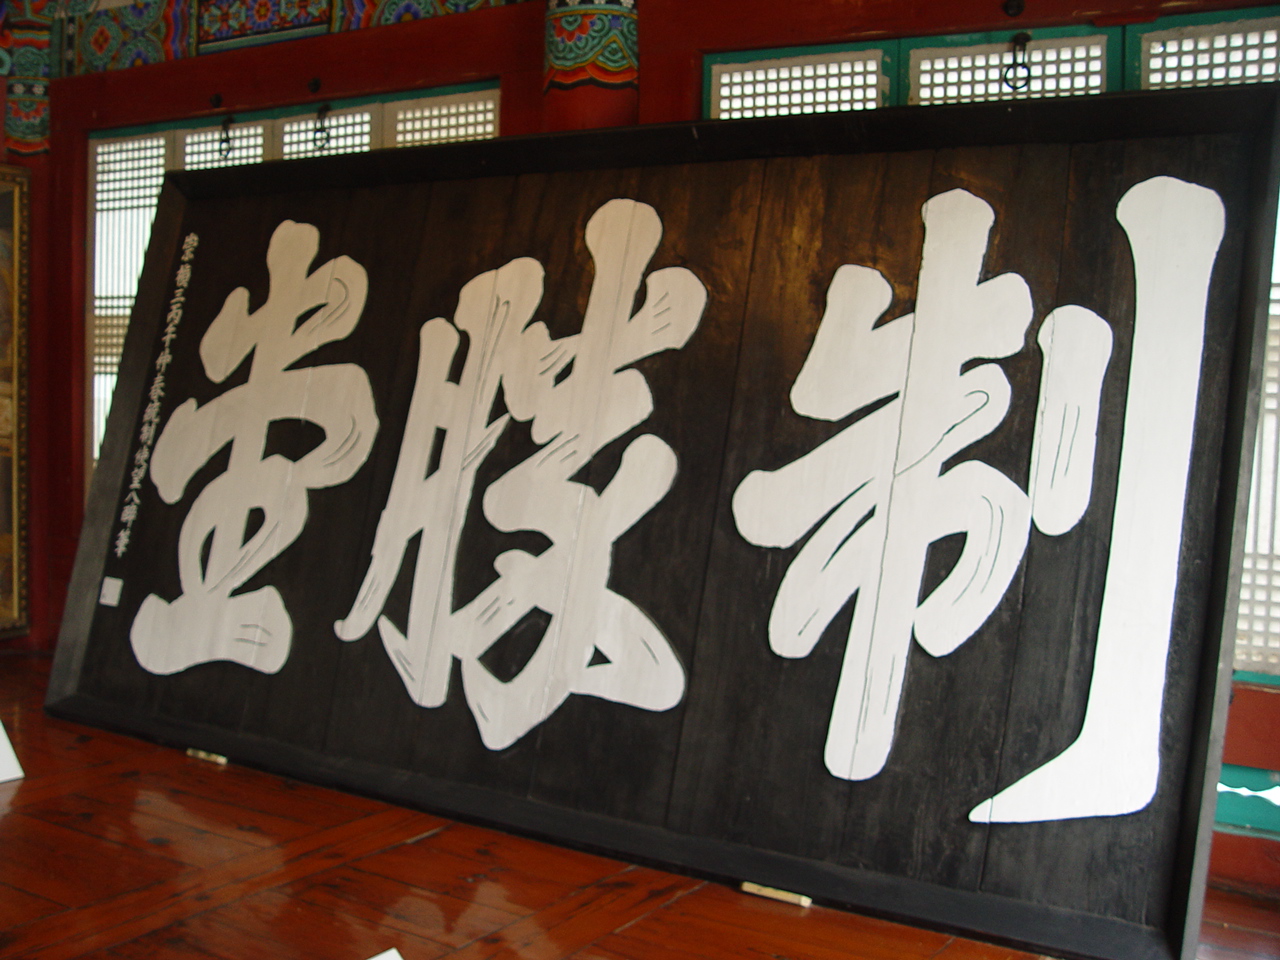 制勝堂
崇禎三丙子仲春統制使